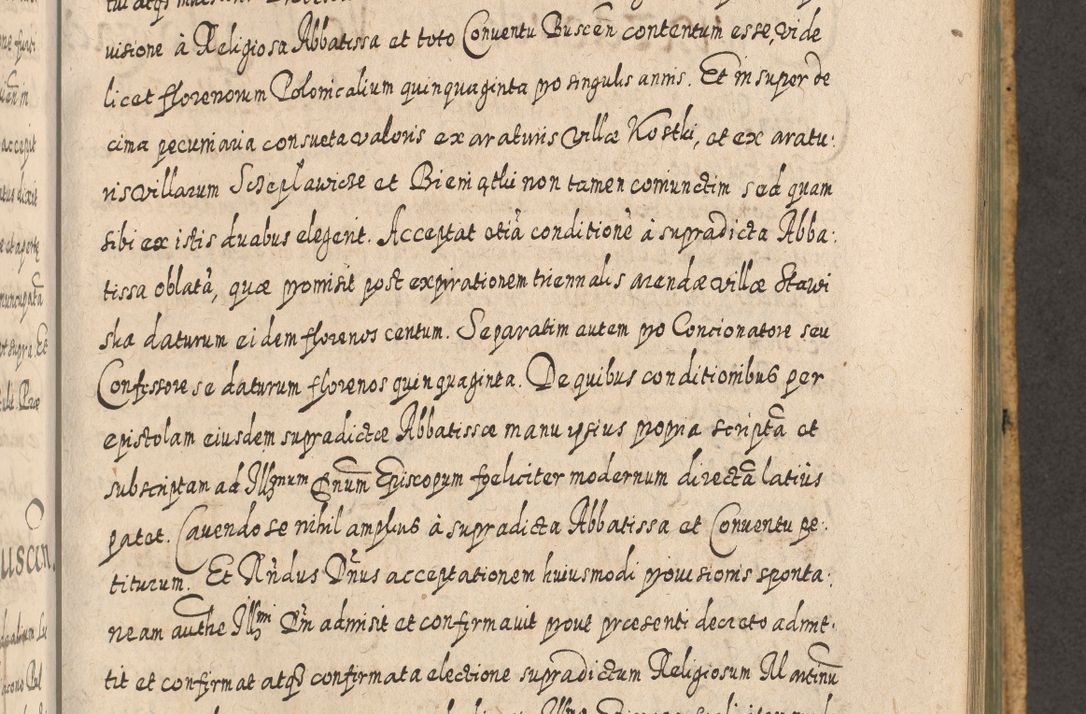 visione à Religiosa Abbatissa et toto Conventu Buscen̄ contentum esse, vide
licet florenorum Polonicalium quinquaginta pro singulis annis. Et insuper de
cima pecuniaria consueta valoris ex araturis villæ Kostki, et ex aratu:
ris villarum Sczepławicze et Bieniątki non tamen coniunctim sed quam
sibi ex istis duabus elegerit. Acceptat etiā conditionē à supradicta Abba:
tissa oblatā, quæ promisit post expirationem triennalis arendæ villæ Stawi
ska daturum eidem florenos centum. Separatim autem pro Concionatore seu
Confessore se daturum florenos quinquaginta. De quibus conditionibus per
epistolam eiusdem supradictæ Abbatissæ manu ipsius propria scriptā et
subscriptam ad Illmum Dnum Episcopum feliciter modernum directā latius
patet. Cavendo se nihil amplius à supradicta Abbatissa et Conventu pe:
titurum. Et Rndus Dnus acceptationem huiusmodi provisionis sponta:
neam authe Illmi Dni admisit et confirmavit prout præsenti decreto admit:
tit et confirmat atq confirmata electione supradictum Religiosum Martinū